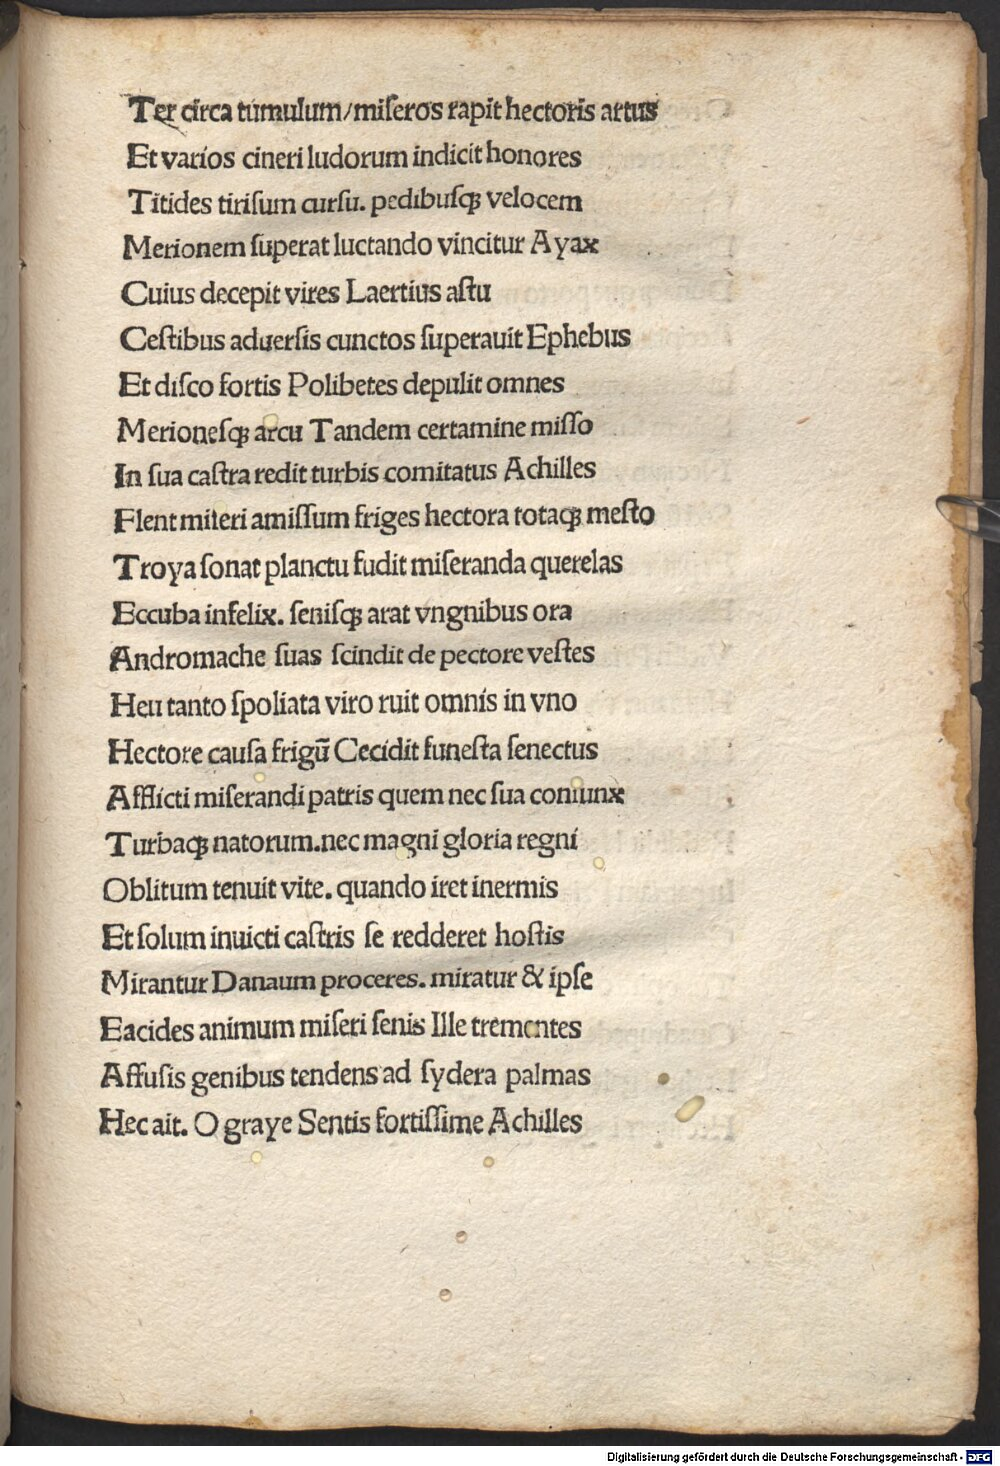 Ter circa tumulum/miſeros rapit hectoris artus
Et varios cineri ludorum indicit honores
Titides tiriſum curſu. pedibuſqꝫ velocem
Merionem ſuperat luctando vincitur Ayax
Cuius decepit vires Laertius aſtu
Ceſtibus aduerſis cunctos ſuperauit Ephebus
Et diſco fortis Polibetes depulit omnes
Merioneſqꝫ arcu Tandem certamine miſſo
In ſua caſtra redit turbis comitatus Achilles
Flent miſeri amiſſum friges hectora totaqꝫ meſto
Troya ſonat planctu fudit miſeranda querelas
Eccuba infelix. ſeniſqꝫ arat vngnibus ora
Andromache ſuas ſcindit de pectore veſtes
Heu tanto ſpoliata viro ruit omnis in vno
Hectore cauſa frigū Cecidit funeſta ſenectus
Afflicti miſerandi patris quem nec ſua coniunx
Turbaqꝫ natorum.nec magni gloria regni
Oblitum tenuit vite. quando iret inermis
Et ſolum inuicti caſtris ſe redderet hoſtis
Mirantur Danaum proceres. miratur & ipſe
Eacides animum miſeri ſenis Ille trementes
Affuſis genibus tendens ad ſydera palmas
Hec ait. O graye Sentis fortiſſime Achilles
Digitalisierung gefördert durch die Deutsche Forschungsgemeinschaft - DFG